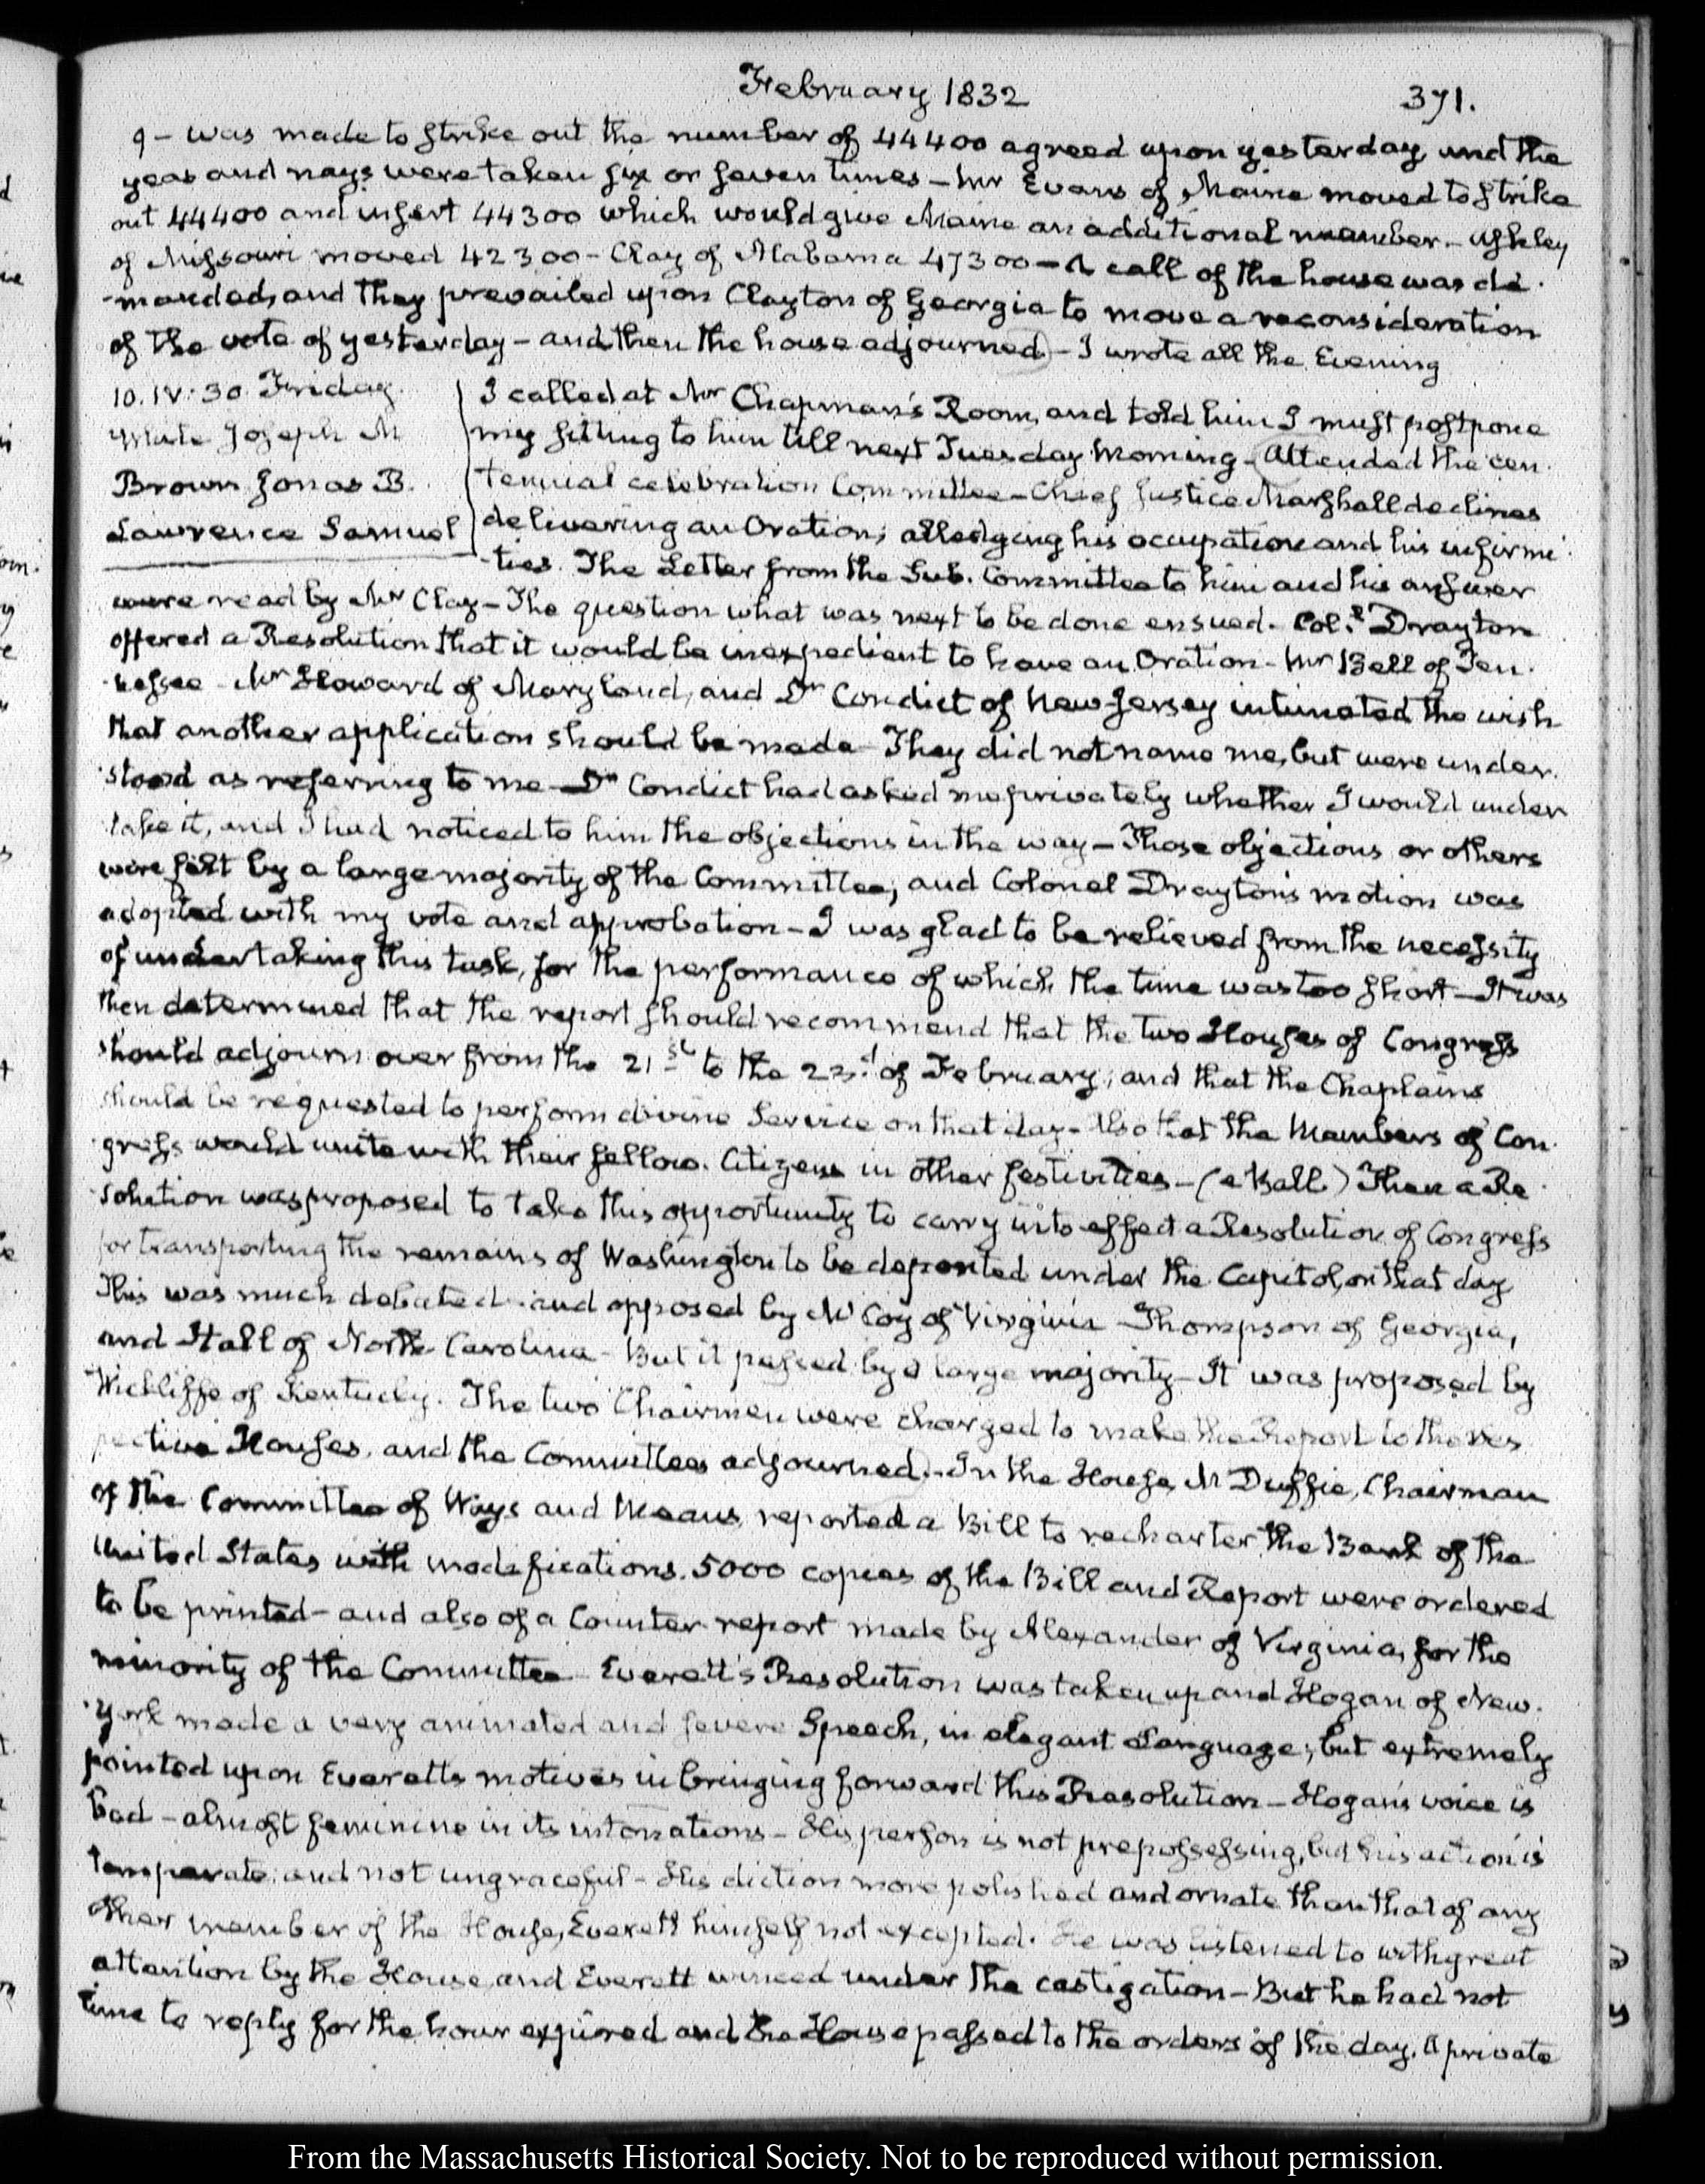 February 1832
371.
9 – was made to strike out the number of 44400 agreed upon yesterday, and the
yeas and nays were taken six or seven times – Mr Evans of Maine moved to strike
out 44400 and insert 44300 which would give Maine an additional member – Ashley
of Missouri moved 42300 – Clay of Alabama 47300 – A call of the house was de-
-manded, and they prevailed upon Clayton of Georgia to move a reconsideration
of the vote of yesterday – and then the house adjourned) – I wrote all the Evening
10. IV:30. Friday.
White Joseph M
Brown Jonas B.
Lawrence Samuel
I called at Mr Chapman's Room, and told him I must postpone
my sitting to him till next Tuesday Morning – (Attended the cen-
tennial celebration Committee – Chief Justice Marshall declines
delivering an Oration; alledging his occupation and his infirmi-
-ties. The Letter from the Sub. Committee to him and his answer
were read by Mr Clay – The question what was next to be done ensued. Col.l Drayton
offered a Resolution that it would be inexpedient to have an Oration – Mr Bell of Ten-
-nessee – Mr Howard of Maryland, and Dr Condict of New Jersey intimated the wish
that another application should be made – They did not name me, but were under-
-stood as referring to me – Dr Condict had asked me privately whether I would under
take it, and I had noticed to him the objections in the way – Those objections or others
were felt by a large majority of the Committee, and Colonel Drayton's motion was
adopted with my vote and approbation – I was glad to be relieved from the necessity
of undertaking this task, for the performance of which the time was too short – It was
then determined that the report should recommend that the two Houses of Congress
should adjourn over from the 21st to the 23d of February; and that the Chaplains
should be requested to perform divine Service on that day – Also that the Members of Con-
-gress would unite with their fellow-Citizens in other festivities – (a Ball) Then a Re-
-solution was proposed to take this opportunity to carry into effect a Resolution of Congress
for transporting the remains of Washington to be deposited under the Capitol, on that day
This was much debated and opposed by McCoy of Virginia – Thompson of Georgia,
and Hall of North-Carolina – But it passed by a large majority – It was proposed by
Wickliffe of Kentucky. The two Chairmen were charged to make the Report to the res
pective Houses, and the Committees adjourned) – In the House, McDuffie, Chairman
of the Committee of Ways and Means, reported a Bill to recharter the Bank of the
United States with modifications. 5000 copies of the Bill and Report were ordered
to be printed – and also of a Counter-report made by Alexander of Virginia, for the
minority of the Committee – Everett's Resolution was taken up and Hogan of New-
-York made a very animated and severe Speech, in elegant Language; but extremely
pointed upon Everetts motives in bringing forward this Resolution – Hogan's voice is
bad – almost feminine in its intonations – His person is not prepossessing, but his action is
temperate, and not ungraceful – His diction more polished and ornate than that of any
other member of the House, Everett himself not excepted. He was listened to with great
attention by the House, and Everett winced under the castigation – But he had not
time to reply for the hour expired and the House passed to the orders of the day. A private
From the Massachusetts Historical Society. Not to be reproduced without permission.